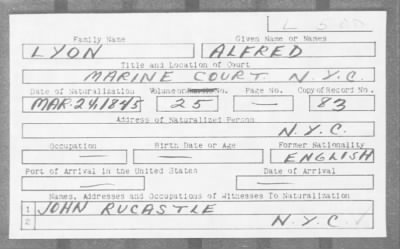 L 500
Family Name Given Name or Names
LYON ALFRED
Title and Location of Court
MARINE COURT N.Y.C.
Date of Naturalization Volume or Bundle No. Page No. Copy of Record No.
MAR. 24, 1845 25 — 83
Address of Naturalized Person
N.Y.C.
Occupation Birth Date or Age Former Nationality
— — ENGLISH
Port of Arrival in the United States Date of Arrival
— —
Names, Addresses and Occupations of Witnesses To Naturalization
1 JOHN RUCASTLE
2 N.Y.C.